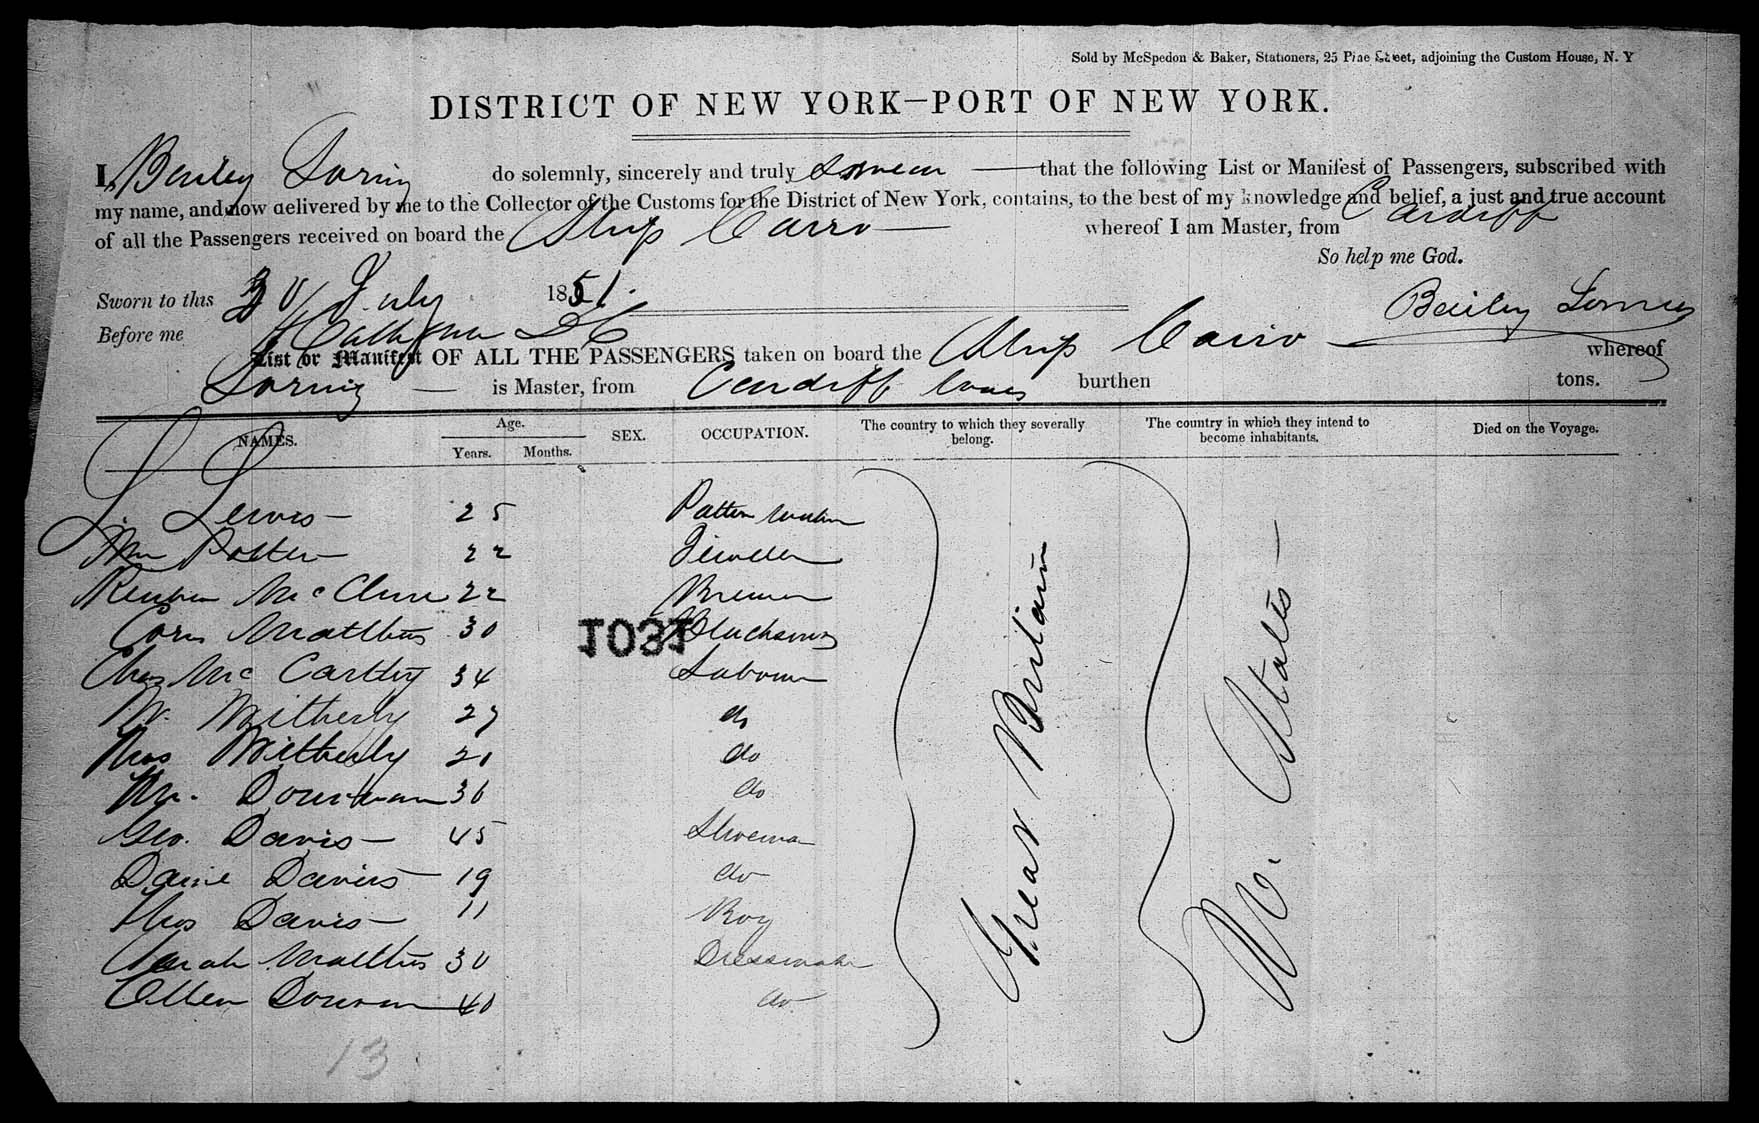 Sold by McSpedon & Baker, Stationers, 25 Pine Street, adjoining the Custom House, N. Y
DISTRICT OF NEW YORK—PORT OF NEW YORK.
I, Bailey Loring do solemnly, sincerely and truly swear that the following List or Manifest of Passengers, subscribed with
my name, and now delivered by me to the Collector of the Customs for the District of New York, contains, to the best of my knowledge and belief, a just and true account
of all the Passengers received on board the Ship Cairo whereof I am Master, from Cardiff
So help me God.
Sworn to this 30 July 1851.
Bailey Loring
Before me
List or Manifest OF ALL THE PASSENGERS taken on board the Ship Cairo whereof
Loring is Master, from Cardiff burthen tons.
NAMES. Age. Years. Months. SEX. OCCUPATION. The country to which they severally belong. The country in which they intend to become inhabitants. Died on the Voyage.
L Lewis 25 Pattern
Potter 22 Jeweller
Reuben McClure 22 Brewer
Matthews 30 Blacksmith
1031
Chas McCarthy 34 Labourer
W. Witherly 27 do
Mrs Witherly 20 do
Donovan 36 do
Geo. Davis 45 Shoema
Davis 19 do
Thos Davis 11 Boy
Sarah Matthews 30 Dressmaker
Ellen Donovan 40 do
Great Britain
U. States
13